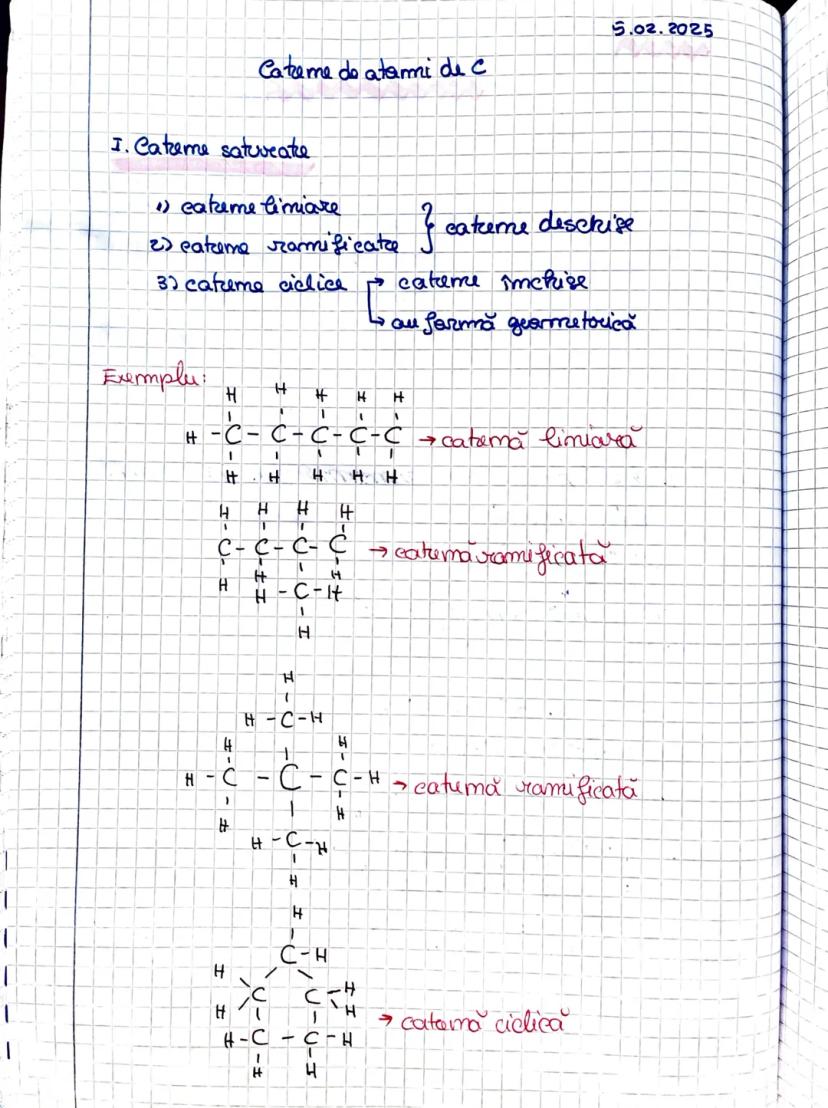 5.02.2025
Catene de atomi de C
I. Catene saturate
1) catene liniare } catene deschise
2) catene ramificate
3) catene ciclice → catene închise
↳ au formă geometrică
Exemplu:
H H H H H
H - C - C - C - C - C → catenă liniară
H H H H H
H H H H
C - C - C - C → catenă ramificată
H H H
H - C - H
H
H
H - C - H
H H
H - C - C - C - H → catenă ramificată
H H
H - C - H
H
H
C - H
H
C C - H
H H → catenă ciclică
H - C - C - H
H H